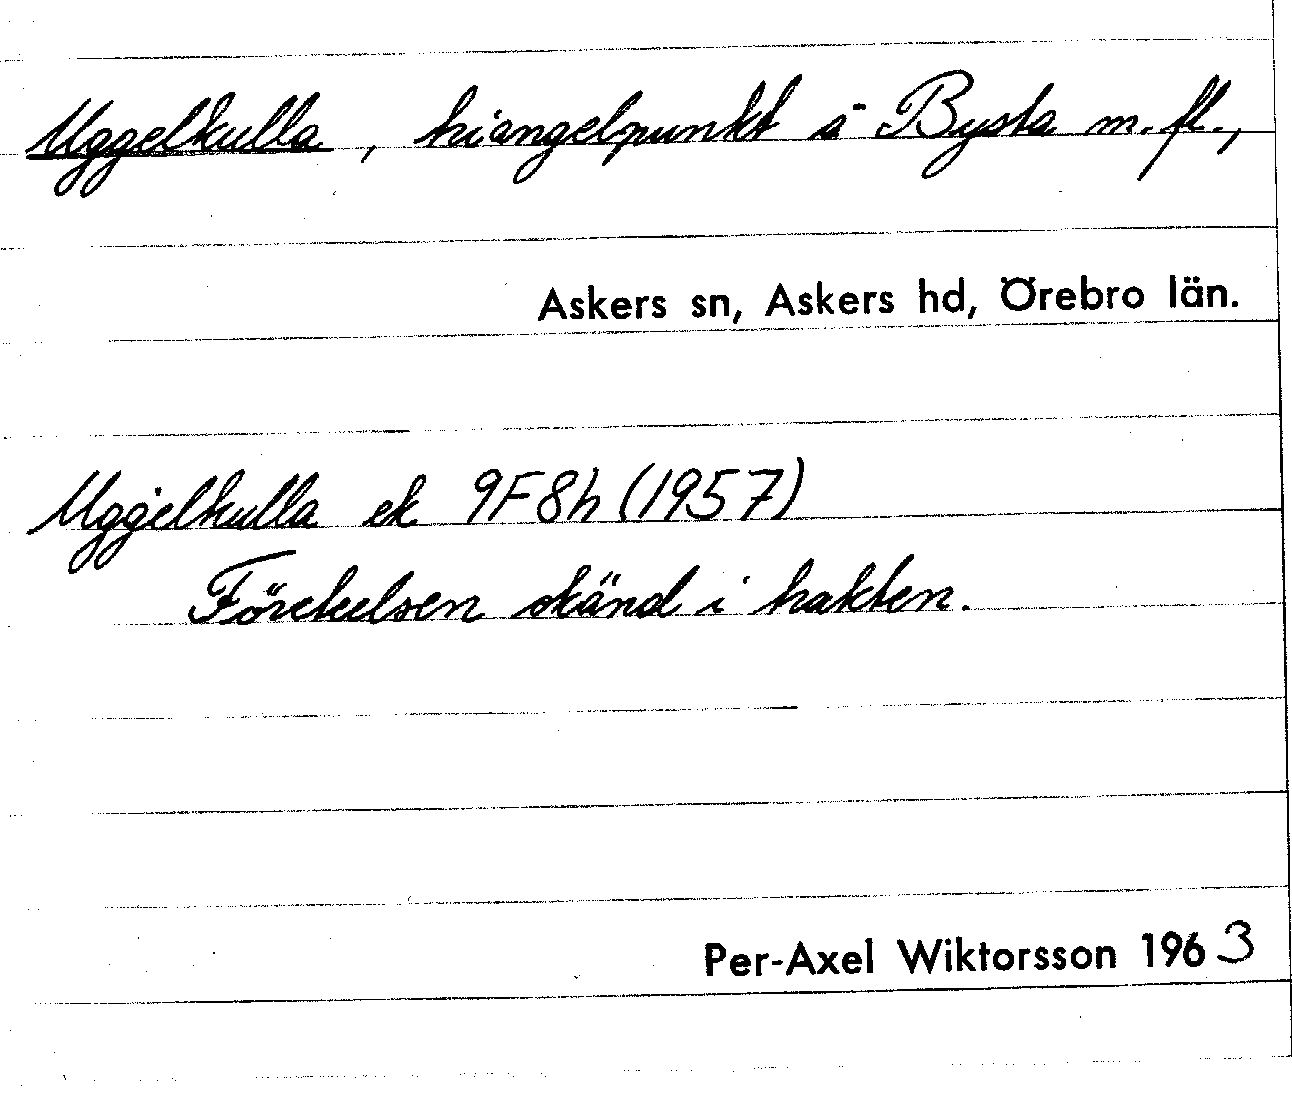 Uggelkulla, triangelpunkt å Bysta m. fl.,
Askers sn, Askers hd, Örebro län.
Uggelkulla ek 9F8h (1957)
Företeelsen okänd i trakten.
Per-Axel Wiktorsson 1963